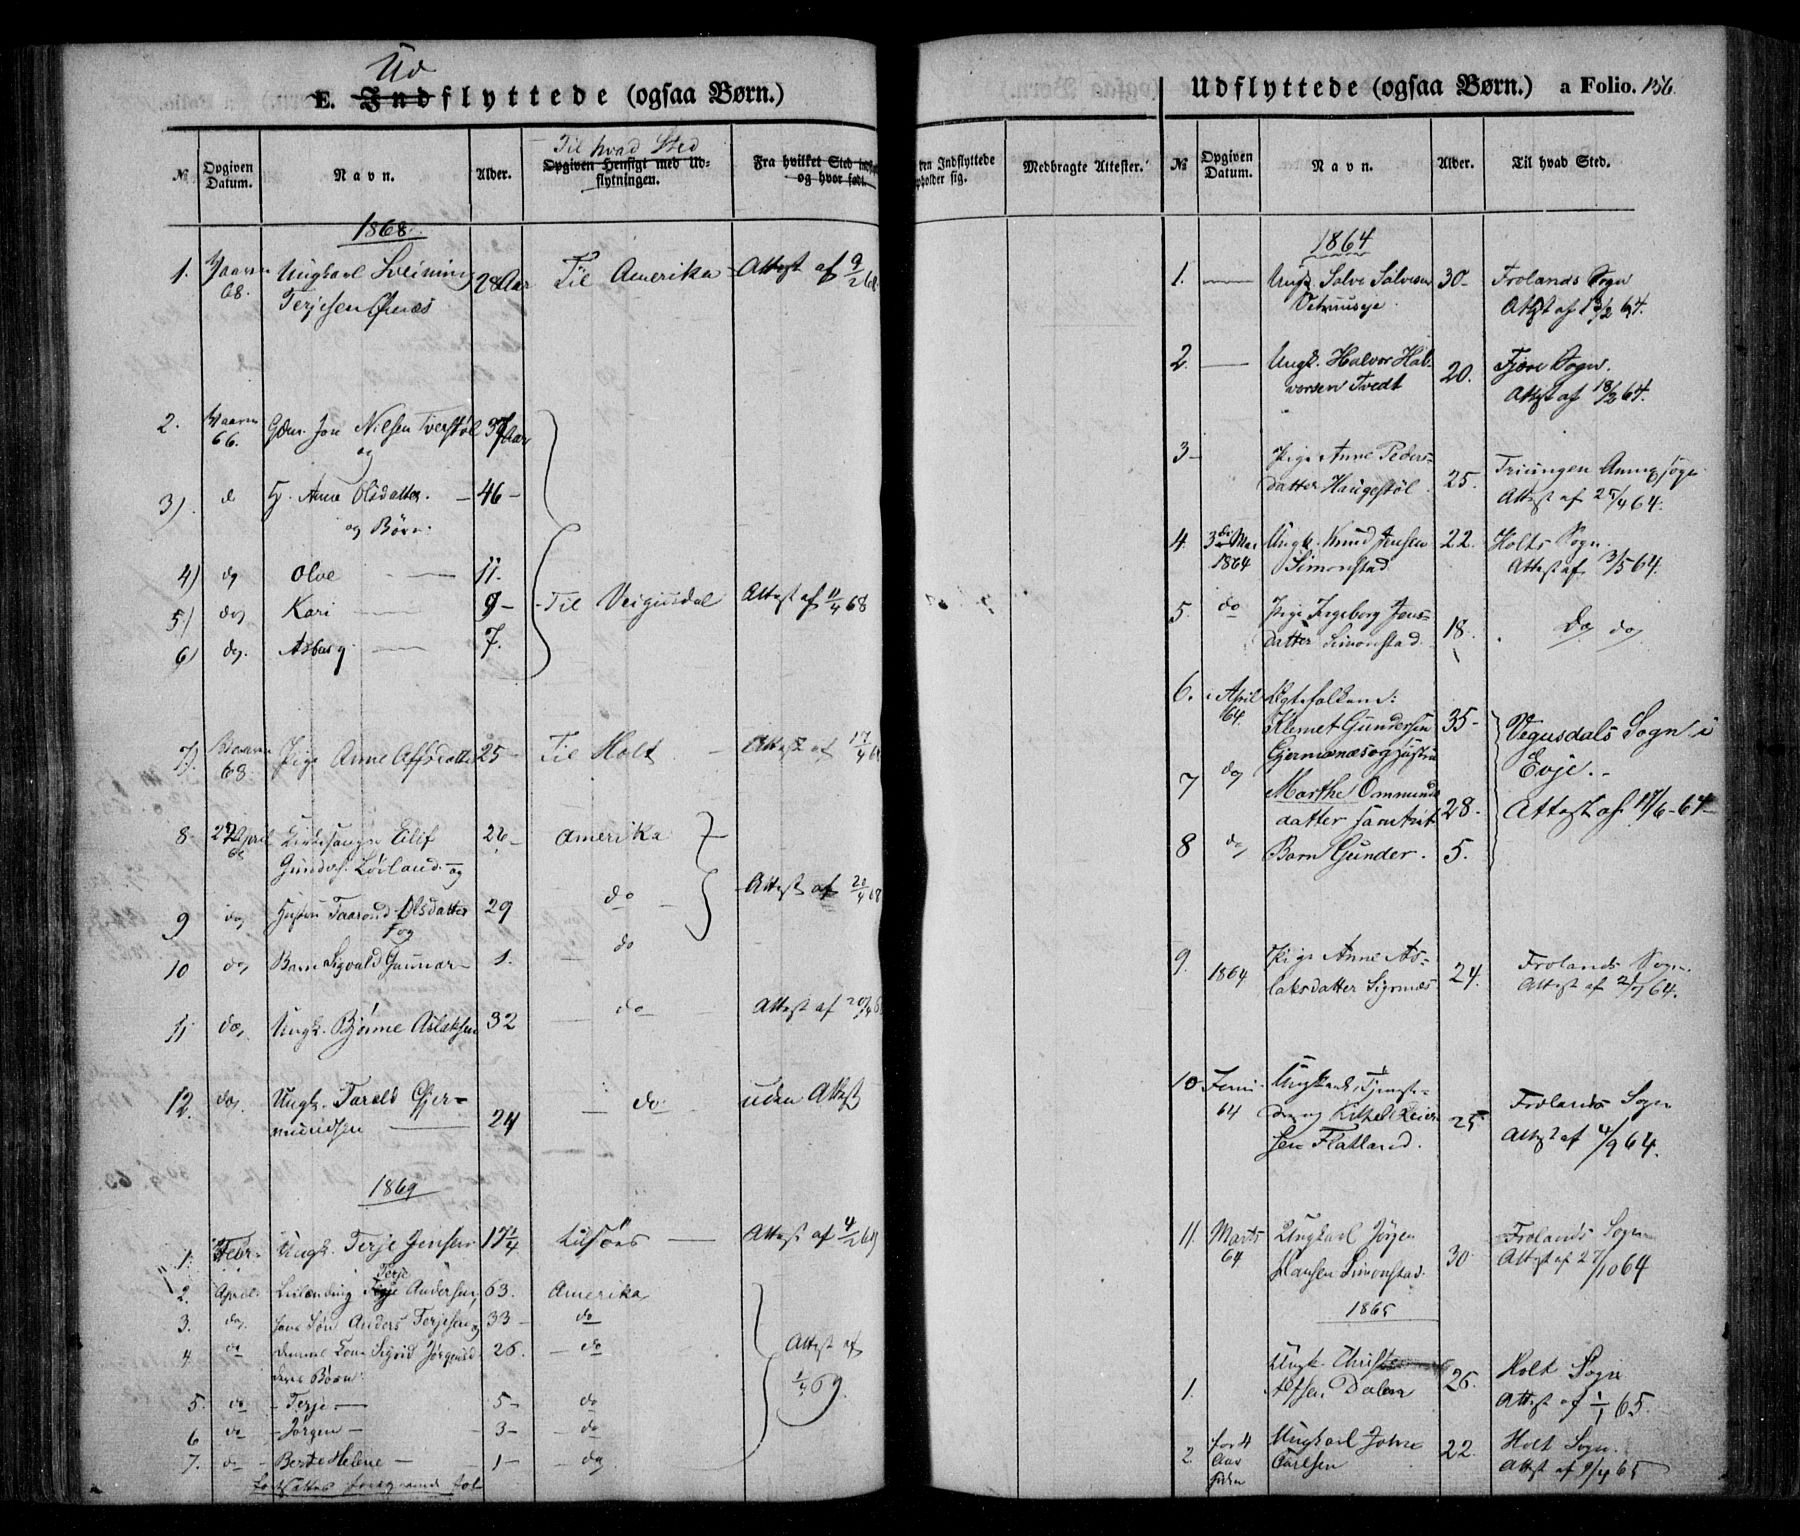 Ud
E. Indflyttede (ogsaa Børn.)
Til hvad Sted
№ Opgiven Datum. Navn. Alder. Opgiven Hensigt med Udflytningen. Fra hvilket Sted
og hvor født.
1868.
1. Vaaren 68. Ungkarl Sveinung 28 Aar Til Amerika Attest af 9/2 68
Terjesen Øynæs
2. Vaaren 66. Gdm. Jon Nilsen Tverstøl 37 Aar
og
3) H. Anne Olsdatter. 46
og Børn:
4) do Olve 11.
5) do Kari 9 Til Veigusdal Attest af 11/4 68
6) do. Asberg 7.
7) Vaaren 68. Pige Anne Alfsdatter 25 Til Holt Attest af 17/4 68
8 April 68 Eilif 26 Amerika
Gunders. Løvland og
Attest af 20/4 68
9 do Hustru Taarond Olsdatter 29 do
og
10 do Barn Sigvald Gunnar 1. do
11 do, Ungk. Bjønne Aslaksen 32 do Attest af 20/4 68
12. do, Ungk. Tarald Gjer- 24 do uden Attest
mundsen
1869
1. Febr. Ungk. Terje Jensen 17 1/4 Attest af 4/2 69
2. April. Terje Andersen, 63. Amerika
3. do, hans Søn Anders Terjesen og 33 do
4. do dennes Kone Sigrid Jørgensd. 26. do Attest af
deres Børn: 1/4 69.
5. do Terje 5 do
6 do Jørgen 3 do
7. do Berte Helene 1 do
fortsættes foregaaende fol
Indflyttede
opholder sig. Medbragte Attester.
Udflyttede (ogsaa Børn.) a Folio. 156
№ Opgiven Datum. Navn. Alder. Til hvad Sted.
1864
1. Ungk. Salve Salvesen 30 Frolands Sogn
Attest af 13/2 64.
2. Ungk. Halvor Hal- 20. Fjære Sogn.
vorsen Tvedt Attest af 18/2 64.
3 Pige Anne Peders-
datter Haugestøl 25. Attest af 25/4 64.
4. 3die Mai 1864 Ungk. Knud Jensen 22. Holts Sogn.
Simonstad Attest af 3/5 64.
5. do Pige Ingeborg Jens- 18. Do do
datter Simonstad.
6. April 64. Ægtefolkene:
Klemet Gundersen 35 Vegusdals Sogn i
Gjermonæs og Hustru Evje.
7 do Marthe Ommunds- 28. Attest af 17/6-64
datter samt
8 do Barn Gunder. 5.
9. 1864 Pige Anne As- 24. Frolands Sogn.
laksdatter Attest af 2/7 64.
10 Juni 64 Ungkarl, Tjeneste-
dreng Kittel Reier- 25 Frolands Sogn
sen Flatland. Attest af 4/9 64.
11. Marts 64 Ungkarl Jørgen Frolands Sogn
Hansen Simonstad. 30 Attest af 27/10 64
1865
1. Ungk. Christen 26. Holt Sogn
Alfsen Dalen Attest af 1/1 65.
2 for 4 Aar siden Ungkarl Johne 22. Holt Sogn.
Carlsen Attest af 9/4 65